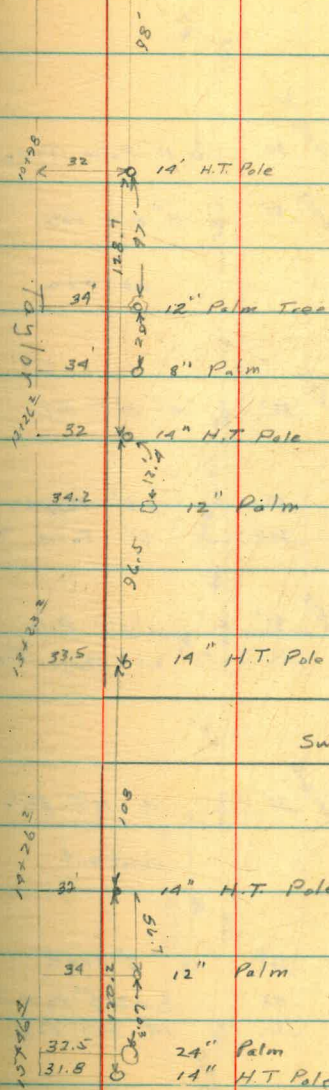 98'
10+98 32 14' H.T. Pole
128.7
97'
34' 12" Palm Tree
Taylor
20
34' 8" Palm
32 14" H.T. Pole
12.4
34.2 12" Palm
96.5
33.5 14" H.T. Pole
Su
108
32' 14" H.T. Pole
56.7
34 12" Palm
120.2
32.5 24" Palm
31.8 14" H.T. Pole